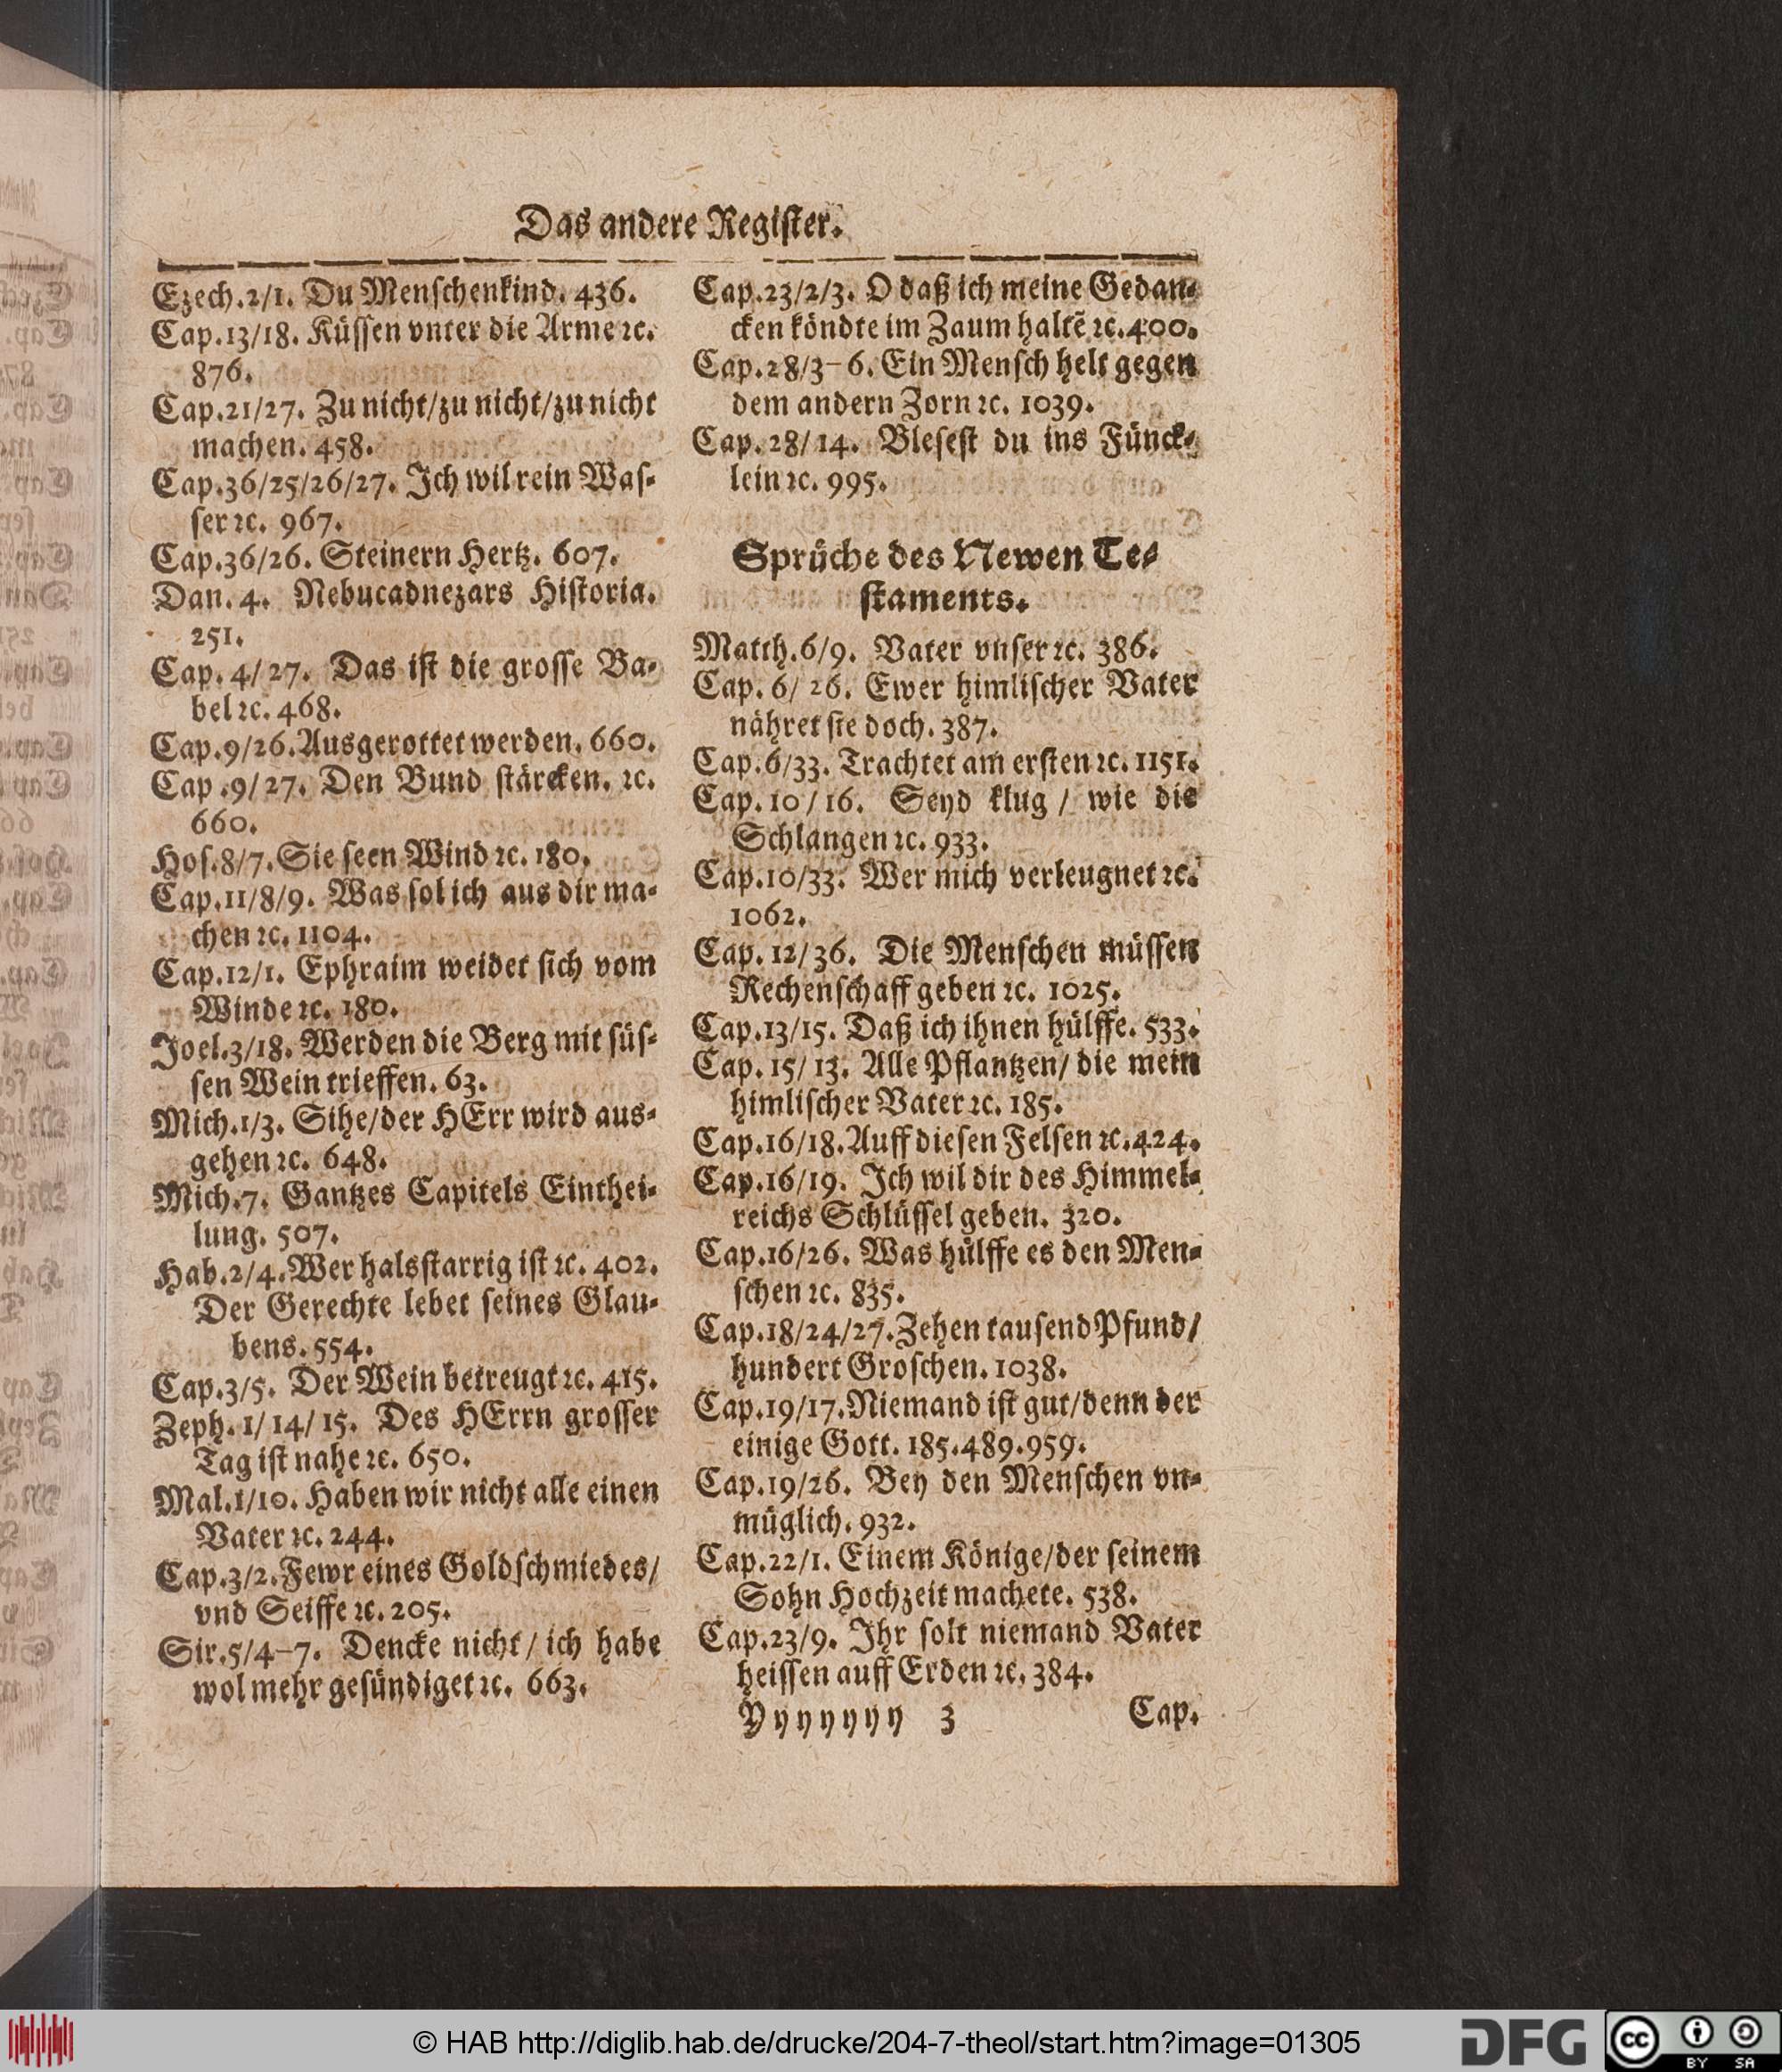 Das andere Regiſter.
Ezech.2/1. Du Menſchenkind. 436.
Cap.13/18. Küſſen vnter die Arme ꝛc.
876.
Cap.21/27. Zu nicht/zu nicht/zu nicht
machen. 458.
Cap.36/25/26/27. Ich wil rein Waſ-
ſer ꝛc. 967.
Cap.36/26. Steinern Hertz. 607.
Dan. 4. Nebucadnezars Hiſtoria.
251.
Cap. 4/27. Das iſt die groſſe Ba-
bel ꝛc. 468.
Cap.9/26. Ausgerottet werden. 660.
Cap.9/27. Den Bund ſtärcken. ꝛc.
660.
Hoſ.8/7. Sie ſeen Wind ꝛc. 180.
Cap.11/8/9. Was ſol ich aus dir ma-
chen ꝛc. 1104.
Cap.12/1. Ephraim weidet ſich vom
Winde ꝛc. 180.
Joel.3/18. Werden die Berg mit ſüſ-
ſen Wein trieffen. 63.
Mich.1/3. Sihe/der HErr wird aus-
gehen ꝛc. 648.
Mich.7. Gantzes Capitels Einthei-
lung. 507.
Hab.2/4. Wer halsſtarrig iſt ꝛc. 402.
Der Gerechte lebet ſeines Glau-
bens. 554.
Cap.3/5. Der Wein betreugt ꝛc. 415.
Zeph. 1/14/15. Des HErrn groſſer
Tag iſt nahe ꝛc. 650.
Mal.1/10. Haben wir nicht alle einen
Vater ꝛc. 244.
Cap.3/2. Fewr eines Goldſchmiedes/
vnd Seiffe ꝛc. 205.
Sir.5/4-7. Dencke nicht/ ich habe
wol mehr geſündiget ꝛc. 663.
Cap.23/2/3. O daß ich meine Gedan-
cken köndte im Zaum haltẽ ꝛc. 400.
Cap.28/3-6. Ein Menſch helt gegen
dem andern Zorn ꝛc. 1039.
Cap. 28/14. Bleſeſt du ins Fünck-
lein ꝛc. 995.
Sprüche des Newen Te-
ſtaments.
Matth.6/9. Vater vnſer ꝛc. 386.
Cap. 6/26. Ewer himliſcher Vater
nähret ſie doch. 387.
Cap.6/33. Trachtet am erſten ꝛc. 1151.
Cap. 10/16. Seyd klug / wie die
Schlangen ꝛc. 933.
Cap.10/33. Wer mich verleugnet ꝛc.
1062.
Cap. 12/36. Die Menſchen müſſen
Rechenſchaff geben ꝛc. 1025.
Cap.13/15. Daß ich ihnen hülffe. 533.
Cap. 15/13. Alle Pflantzen/ die mein
himliſcher Vater ꝛc. 185.
Cap.16/18. Auff dieſen Felſen ꝛc. 424.
Cap.16/19. Ich wil dir des Himmel-
reichs Schlüſſel geben. 320.
Cap.16/26. Was hülffe es den Men-
ſchen ꝛc. 835.
Cap.18/24/27. Zehen tauſend Pfund/
hundert Groſchen. 1038.
Cap.19/17. Niemand iſt gut/denn der
einige Gott. 185.489.959.
Cap.19/26. Bey den Menſchen vn-
müglich. 932.
Cap.22/1. Einem Könige/der ſeinem
Sohn Hochzeit machete. 538.
Cap.23/9. Ihr ſolt niemand Vater
heiſſen auff Erden ꝛc. 384.
Yyyyyyy 3 Cap.
© HAB http://diglib.hab.de/drucke/204-7-theol/start.htm?image=01305
DFG
cc BY SA